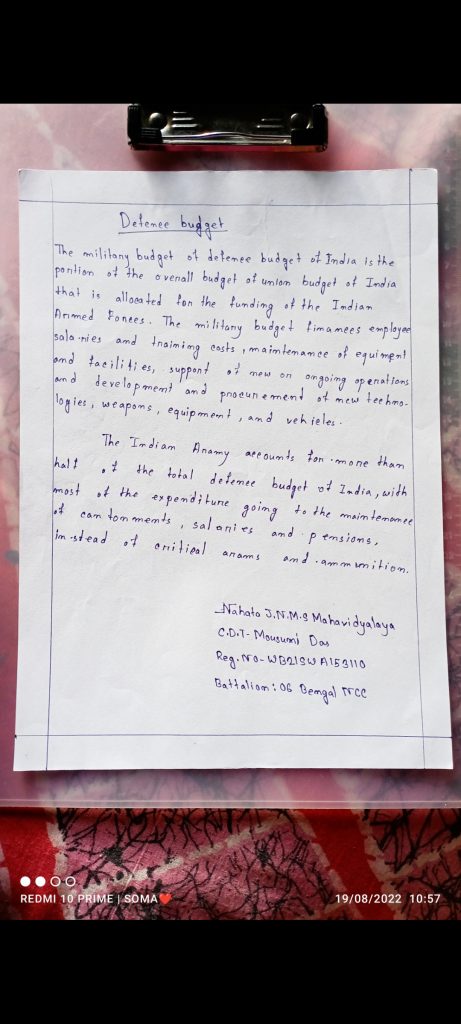 Defence budget
The military budget of defence budget of India is the
portion of the overall budget of union budget of India
that is allocated for the funding of the Indian
Armed Forces. The military budget finances employee
sala-ries and training costs, maintenance of equiment
and facilities, support of new or ongoing operations
and development and procurement of new techno-
logies, weapons, equipment, and vehicles.
The Indian Aramy accounts for more than
half of the total defence budget of India, with
most of the expenditure going to the maintenance
of cantonments, salaries and pensions,
in-stead of critical arams and ammunition.
Nahata J.N.M.S Mahavidyalaya
C.D.T- Mousumi Das
Reg. No- WB21SWA153110
Battalion: 06 Bengal NCC
REDMI 10 PRIME | SOMA❤
19/08/2022 10:57